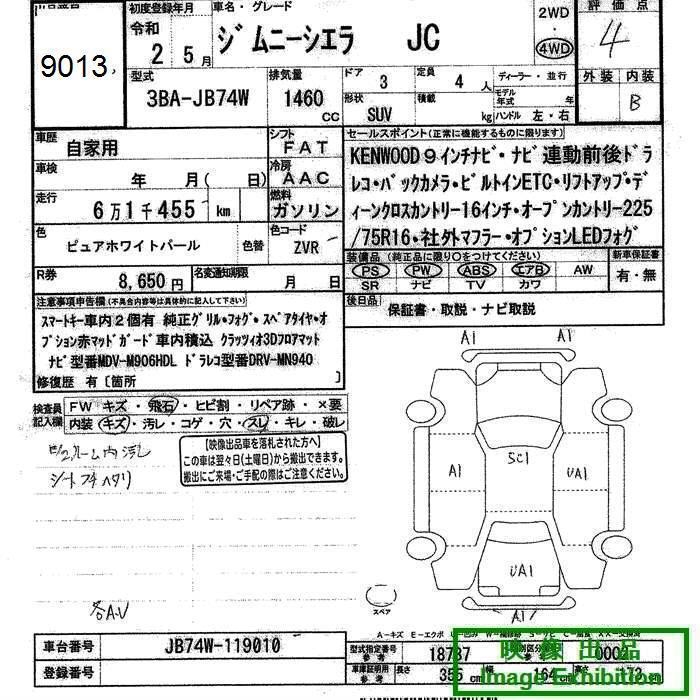 初度登録年月
車名・グレード
2WD
評価点
令和
ジムニーシエラ JC
4WD
4
2 5月
9013
型式
排気量
ドア 3
定員 4人
ディーラー・並行
外装 内装
3BA-JB74W
1460 CC
形状 SUV
積載 kg
モデル年式 年
ハンドル 左・右
B
車歴
自家用
シフト FAT
セールスポイント(正常に機能するものに限ります)
車検
年 月( 日)
冷房 AAC
KENWOOD9インチナビ・ナビ連動前後ドラ
レコ・バックカメラ・ビルトインETC・リフトアップ・デ
走行
6万1千455 km
燃料 ガソリン
ィーンクロスカントリー16インチ・オープンカントリー225
色
ピュアホワイトパール
色替
色コード ZVR
/75R16・社外マフラー・オプションLEDフォグ
装備品(純正品に限り○をつけてください)
新車保証書
PS PW ABS エアB AW
有・無
SR ナビ TV カワ
R券
8,650円
名変通知期限
月 日
後日品
保証書・取説・ナビ取説
注意事項申告欄(不具合内容等は具体的に記入して下さい)
スマートキー車内2個有 純正グリル・フォグ・スペアタイヤ・オ
プション赤マッドガード車内積込 クラッツィオ3Dフロアマット
ナビ型番MDV-M906HDL ドラレコ型番DRV-MN940
修復歴 有〔箇所 〕
検査員記入欄
FW キズ・飛石・ヒビ割・リペア跡・×要
内装・キズ・汚レ・コゲ・穴・スレ・キレ・破レ
【映像出品車を落札された方へ】
この車は翌々日(土曜日)から搬出できます。
搬出にご来場・ご手配の際はご注意ください。
ルーム内汚レ
A1 A1
A1 SC1 UA1
UA1
スペア
A1
各AU
車台番号
JB74W-119010
型式指定番号参考
18787
0002
登録番号
車庫証明用参考
長さ 355 cm
幅 164
映像出品
Image Exhibition